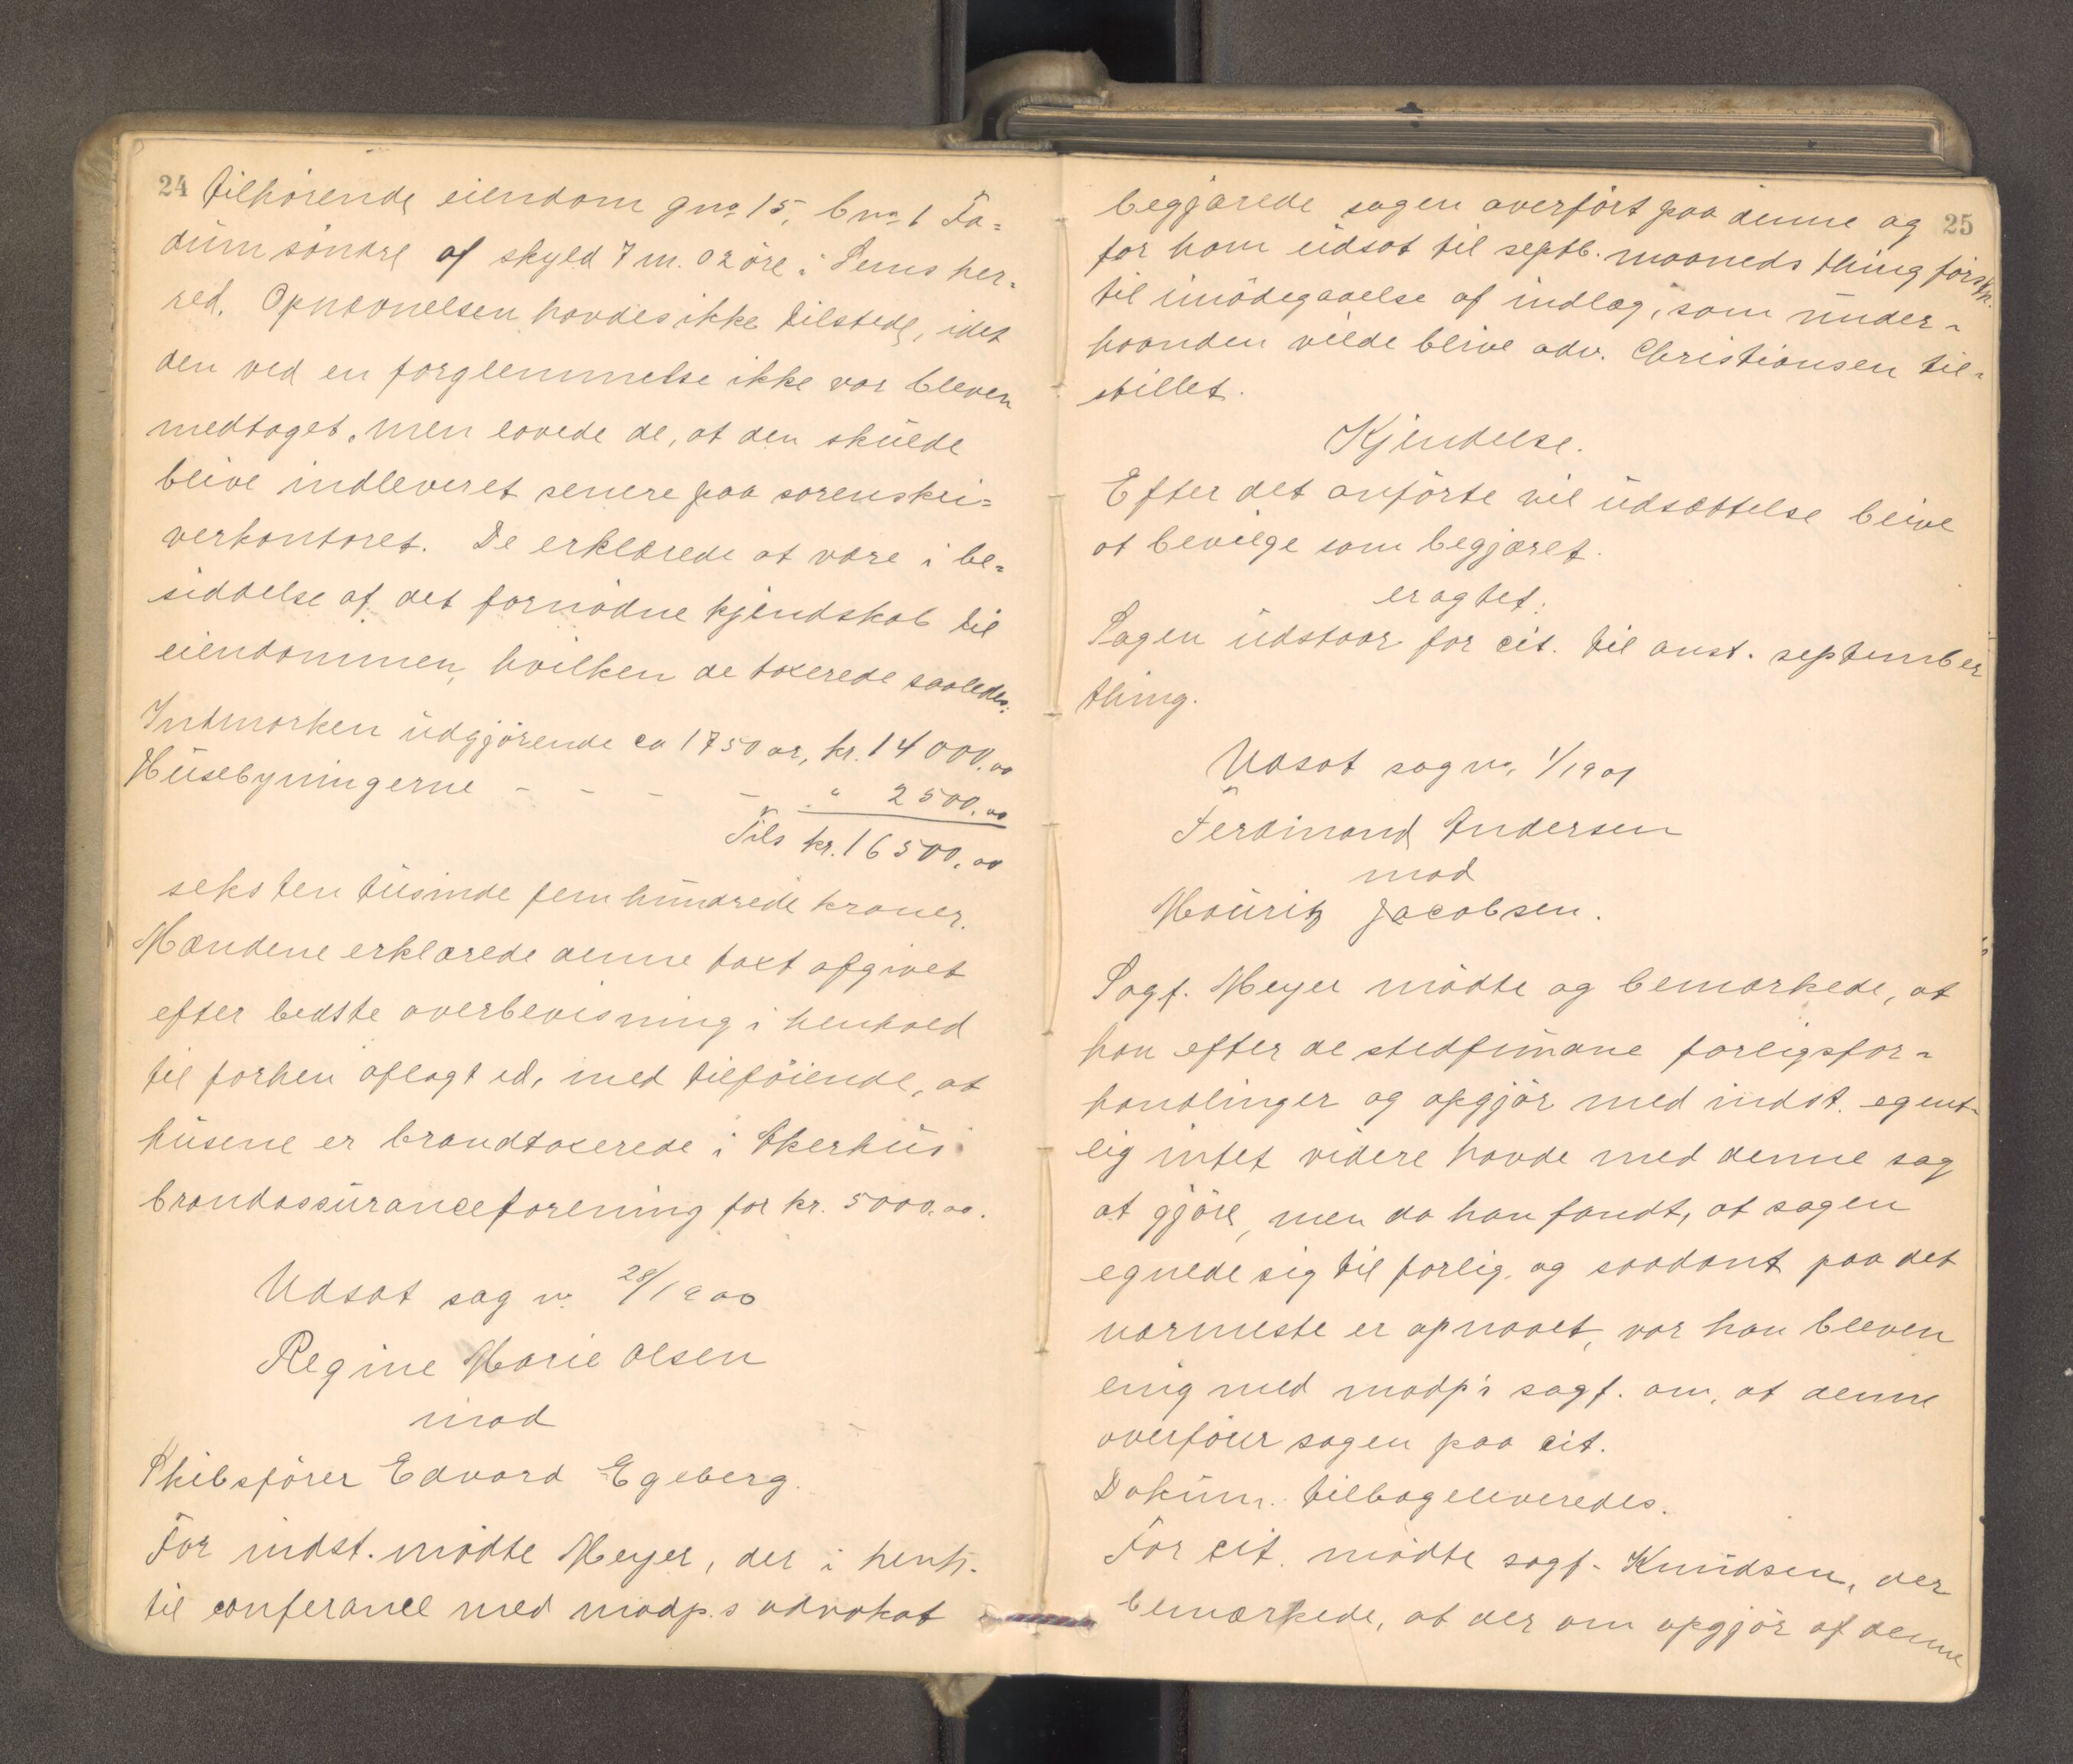 24 tilhörende eiendom gno 15, bno 1 Fa=
dum söndre af skyld 7 m. 02 öre i Sems her-
red. Opnævnelsen havdes ikke tilstede, idet
den ved en forglemmelse ikke var bleven
medtaget, men lovede de, at den skulde
blive indleveret senere paa sorenskri=
verkontoret. De erklærede at være i be=
siddelse af det fornödne kjendskab til
eiendommen, hvilken de taxerede saaledes:
Indmarken udgjörende ca 1750 ar, kr. 14000.00
Husebygningerne - - - - " 2500.00
Tils kr. 16500.00
seksten tusinde fem hundrede kroner.
Mændene erklærede denne taxt afgivet
efter bedste overbevisning i henhold
til forhen aflagt ed, med tilföiende, at
husene er brandtaxerede i Akerhus
brandassuranceforening for kr. 5000.00.
Udsat sag no. 28/1900
Regine Marie Olsen
mod
Skibsförer Edvard Egeberg.
For indst. mödte Meyer, der i henh.
til conferance med modp.s advokat
25
begjærede sagen overfört paa denne og
for ham udsat til septb. maaneds thing förstk.
til imödegaaelse af indlæg, som under-
haanden vilde blive adv. Christiansen til-
stillet.
Kjendelse.
Efter det anförte vil udsættelse blive
at bevilge som begjæret.
eragtet:
Sagen udstaar for cit. til anst. september
thing.
Udsat sag no. 1/1901
Ferdinand Andersen
mod
Mouritz Jacobsen.
Sagf. Meyer mödte og bemærkede, at
han efter de stedfundne forligsfor-
handlinger og opgjör med indst. egent-
lig intet videre havde med denne sag
at gjöre, men da han fandt, at sagen
egnede sig til forlig, og saadant paa det
nærmeste er opnaaet, var han bleven
enig med modp's sagf. om, at denne
overförer sagen paa cit.
Dokum. tilbageleveredes.
For cit. mödte sagf. Knudsen, der
bemærkede, at der om opgjör af denne